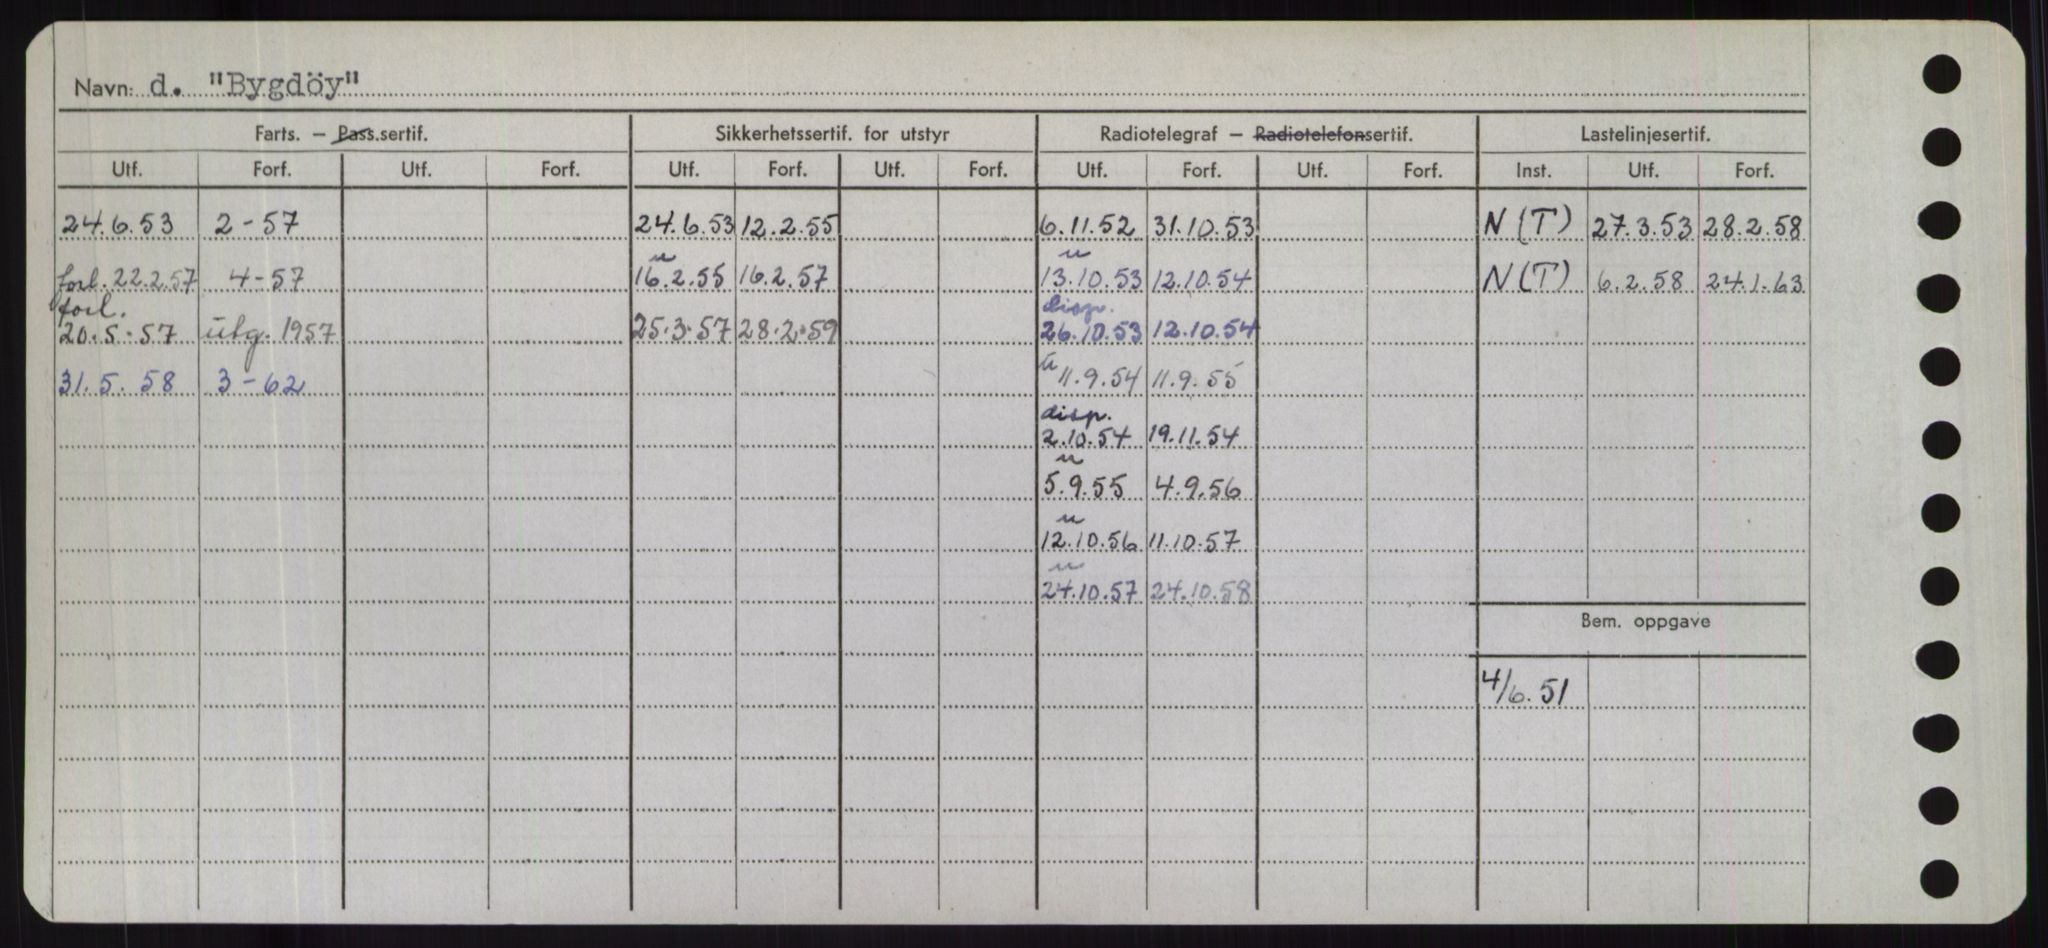 Navn: d. "Bygdöy"
Farts. – Pass.sertif. Sikkerhetssertif. for utstyr Radiotelegraf – Radiotelefonsertif. Lastelinjesertif.
Utf. Forf. Utf. Forf. Utf. Forf. Utf. Forf. Utf. Forf. Utf. Forf. Inst. Utf. Forf.
24.6.53 2-57 24.6.53 12.2.55 6.11.52 31.10.53 N(T) 27.3.53 28.2.58
u u
forl. 22.2.57 4-57 16.2.55 16.2.57 13.10.53 12.10.54 N(T) 6.2.58 24.1.63
forl. disp.
20.5.57 utg. 1957 25.3.57 28.2.59 26.10.53 12.10.54
31.5.58 3-62 u 11.9.54 11.9.55
disp.
2.10.54 19.11.54
u
5.9.55 4.9.56
u
12.10.56 11.10.57
u
24.10.57 24.10.58
Bem. oppgave
4/6.51